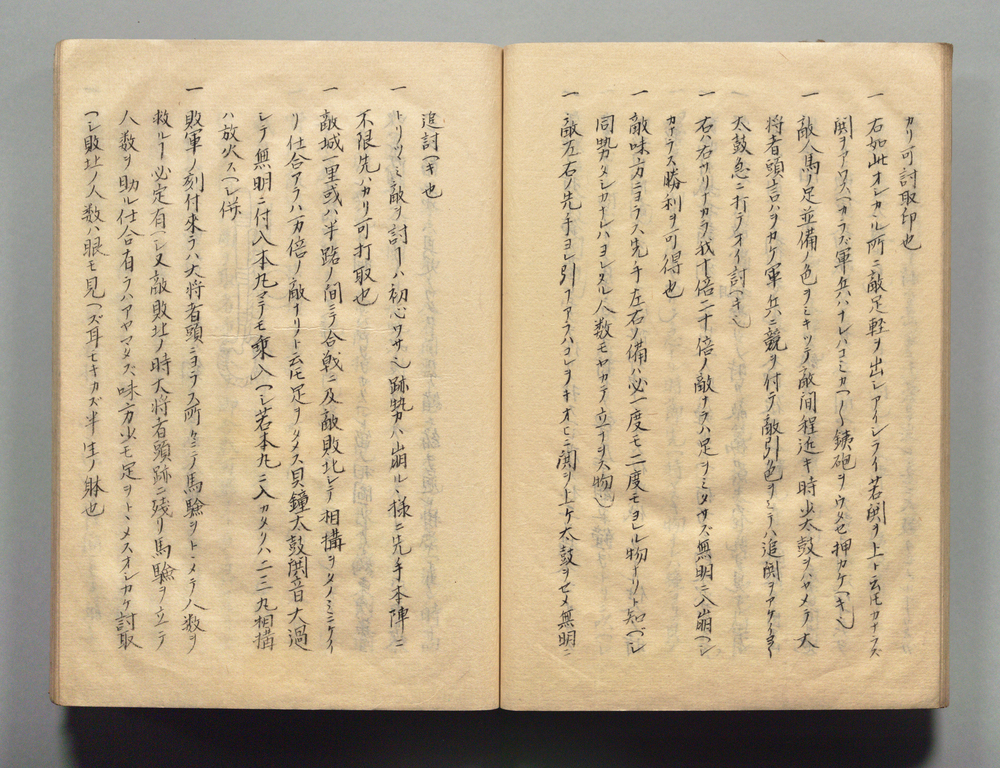 カリ可討取印也
一 右如此オシカヽル所ニ敵足軽ヲ出シアイシライ若鬨ヲ上ト云𪜈カナラズ
鬨ヲアワスヘカラズ軍兵ハナレハコミカヘ〱鉄砲ヲウタセ押カケヘキ也
一 敵人馬ノ足並備ノ色ヲミキツテ敵間程近キ時少太鼓ヲハヤメテ大
将者頭言ハヲカケ軍兵ニ競ヲ付テ敵引色ヲミテハ追鬨ヲアケ
太鼓急ニ打テオイ討ヘキ也
一 右ハ右サリナカラ我十倍二十倍ノ敵ナラハ足ヲミタサズ無明ニ入崩ヘシ
カナラス勝利ヲ可得也
一 敵味方ニヨラス先手左右ノ備ハ必一度モ二度モヨレル物ナリト知ヘシ
同勢タシカナレハヨレタル人数モヤカテ立ナヲル物也
一 敵左右ノ先手ヨレ引アラハコレヲキオヒニ鬨ヲ上ケ太鼓ヲセメ無明ニ
追討ヘキ也
一 トリツミ敵ヲ討ハ初心ワサ也跡勢カ崩ルヽ様ニ先手本陣ニ
不限先ハカリ可打取也
一 敵城一里或ハ半路ノ間ニテ合戦ニ及敵敗北シテ相構ヲタノミニケイ
リ仕合アラハ万倍ノ敵ナリト云𪜈足ヲタメス貝鐘太鼓鬨音大過
シテ無明ニ付入本丸マテモ乗入ヘシ若本丸ニ入カタクハ二三丸相構
ハ放火スヘシ
一 敗軍ノ刻付來ラハ大将者頭ニヨラス所々ニテ馬驗ヲトヽメテ人数ヲ
救ルヿ必定有ヘシ又敵敗北ノ時大将者頭跡ニ残リ馬驗ヲ立テ
人数ヲ助ル仕合有ラハアヤマタズ味方少モ足ヲトヽメスオシカケ討取
ヘシ敗北ノ人数ハ眼モ見ヘズ耳モキカズ半生ノ躰也